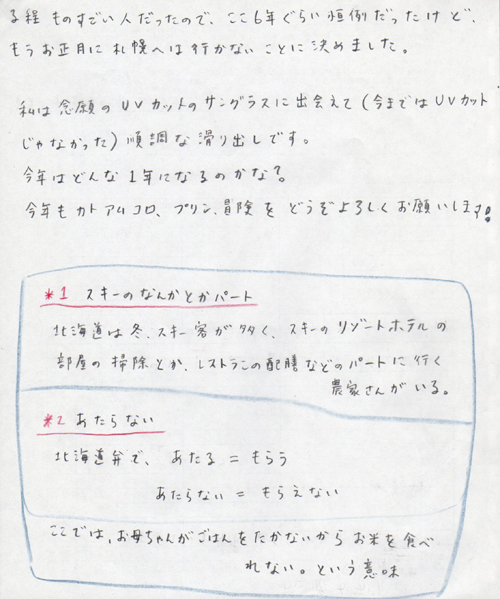 る程 ものすごい人だったので、ここ6年ぐらい恒例だったけど、
もうお正月に札幌へは行かないことに決めました。
私は念願のUVカットのサングラスに出会えて(今まではUVカット
じゃなかった)順調な滑り出しです。
今年はどんな1年になるのかな?。
今年もカトアムコロ、プリン、冒険をどうぞよろしくお願いします!
*1 スキーのなんかとかパート
北海道は冬、スキー客が多く、スキーのリゾートホテルの
部屋の掃除とか、レストランの配膳などのパートに行く
農家さんがいる。
*2 あたらない
北海道弁で、あたる=もらう
あたらない=もらえない
ここでは、お母ちゃんがごはんをたかないからお米を食べ
れない。という意味